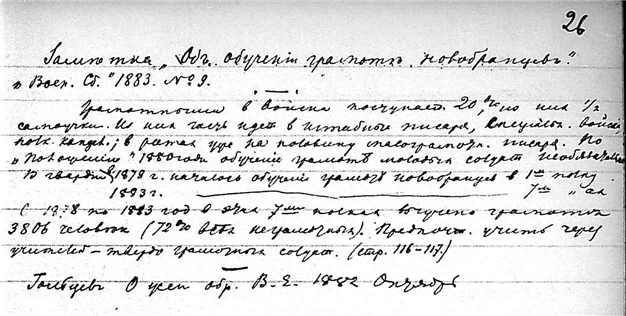 26
Заметка „Объ обученіи грамотѣ новобранцевъ."
„Воен. Сб." 1883. №9.
Грамотными в войска поступает 20%, но из них 1/2
самоучки. Из них часть идет в штабные писаря,
в ротах уже на половину малограмотн. писаря. По
„Положению" 1880 года обучение грамоте молодых солдат необязательно
В гвардии с 1878 г. началось обучение грамоте новобранцев в 1ом полку
1883 г. 7ми „ах
С 1878 по 1883 год в этих 7ми полках выучено грамоте
3806 человек (72% всех неграмотных). Предпочит. учить через
учителей - твердо грамотных солдат. (стр. 116-117.)
Гольцев О усен обр. В. Е. 1882 Октябрь